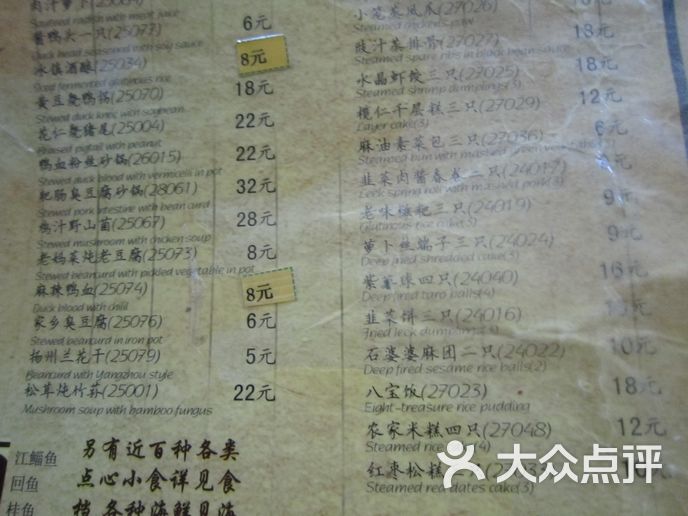 肉汁萝卜
Stewed radish with meat juice
酱鸭头一只(25077) 6元
Duck head seasoned with soy sauce
冰镇酒酿(25034) 8元
Iced fermented glutinous rice
黄豆煲鸭锅(25070) 18元
Stewed duck knec with soybean
花仁煲猪尾(25004) 22元
Braised pigtail with peanut
鸭血粉丝砂锅(26015) 22元
Stewed duck blood with vermicelli in pot
肥肠臭豆腐砂锅(28061) 32元
Stewed pork intestine with bean curd
鸡汁野山菌(25067) 28元
Stewed mushroom with chicken soup
老妈菜炖老豆腐(25073) 8元
Stewed beancurd with pickled vegetable in pot
麻辣鸭血(25074) 8元
Duck blood with chili
家乡臭豆腐(25076) 6元
Stewed beancurd in iron pot
扬州兰花干(25079) 5元
Beancurd with Yangzhou style
松茸炖竹荪(25001) 22元
Mushroom soup with bamboo fungus
江鲻鱼
回鱼
桂鱼
另有近百种各类
点心小食详见食
档,各种海鲜见海
小笼蒸凤爪(27026)
豉汁蒸排骨(27027) 18元
Steamed spare ribs in black bean sauce
水晶虾饺三只(27025) 18元
Steamed shrimp dumplings(3)
榄仁千层糕三只(27029) 12元
Layer cake(3)
麻油素菜包三只(27036) 6元
Steamed bun with mashed green vegetable
韭菜肉酱春卷二只(24017)
Leek spring roll with mashed pork(3)
老味糍粑三只(24019) 9元
Glutinous rice cake(3)
萝卜丝端子三只(24023) 9元
Deep fired shredded cake(3)
紫薯球四只(24040) 16元
Deep fired taro balls(4)
韭菜饼三只(24016) 10元
Fried leck dumplings(3)
石婆婆麻团二只(24022) 10元
Deep fired sesame rice balls(2)
八宝饭(27023) 18元
Eight-treasure rice pudding
农家米糕四只(27048) 12元
Steamed rice
红枣松糕三只(27033)
Steamed red dates cake(3)
大众点评